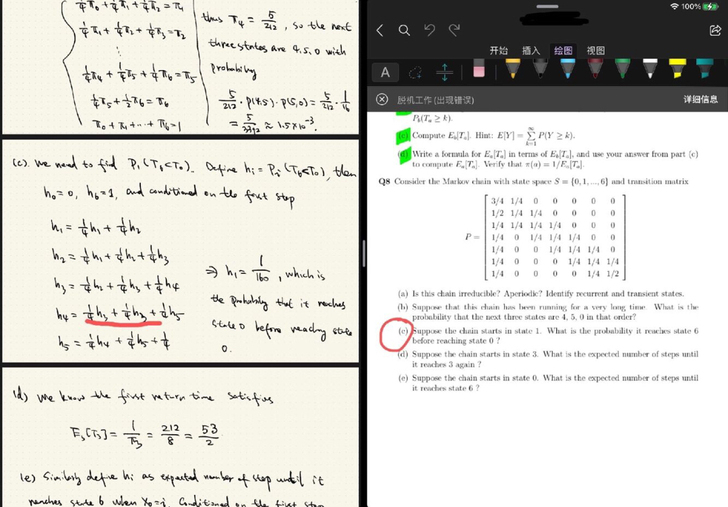 1/4 π0 + 1/4 π1 + 1/4 π2 = π1
1/4 π1 + 1/4 π2 + 1/4 π3 = π2
⋮
1/4 π4 + 1/4 π5 + 1/4 π6 = π5
1/4 π5 + 1/2 π6 = π6
π0 + π1 + ... + π6 = 1
thus π4 = 5/212, so the next
three states are 4,5,0 with
probability
5/212 · P(4,5) · P(5,0) = 5/212 · 1/16
= 5/3392 ≈ 1.5×10^-3.
(c). We need to find P1(T6<T0). Define hi = Pi(T6<T0), then
h0=0, h6=1, and conditioned on the first step
h1 = 1/4 h1 + 1/4 h2
h2 = 1/4 h1 + 1/4 h2 + 1/4 h3
h3 = 1/4 h2 + 1/4 h3 + 1/4 h4
h4 = 1/4 h3 + 1/4 h3 + 1/4 h5
h5 = 1/4 h4 + 1/4 h5 + 1/4
⇒ h1 = 1/160, which is
the probability that it reaches
state 6 before reaching state
0.
(d) We know the first return time satisfies
E3[T3] = 1/π3 = 212/8 = 53/2
(e) Similarly define hi as expected number of step until it
reaches state 6 when X0=i. Conditioned on the first step
100%
开始 插入 绘图 视图
A
脱机工作 (出现错误) 详细信息
Pb(Ta ≥ k).
(c) Compute Eb[Ta]. Hint: E[Y] = ∑ k=1 ∞ P(Y ≥ k).
(d) Write a formula for Ea[Ta] in terms of Eb[Ta], and use your answer from part (c)
to compute Ea[Ta]. Verify that π(a) = 1/Ea[Ta].
Q8 Consider the Markov chain with state space S = {0, 1, ..., 6} and transition matrix
3/4 1/4 0 0 0 0 0
1/2 1/4 1/4 0 0 0 0
1/4 1/4 1/4 1/4 0 0 0
P = 1/4 0 1/4 1/4 1/4 0 0
1/4 0 0 1/4 1/4 1/4 0
1/4 0 0 0 1/4 1/4 1/4
1/4 0 0 0 0 1/4 1/2
(a) Is this chain irreducible? Aperiodic? Identify recurrent and transient states.
(b) Suppose that this chain has been running for a very long time. What is the
probability that the next three states are 4, 5, 0 in that order?
(c) Suppose the chain starts in state 1. What is the probability it reaches state 6
before reaching state 0 ?
(d) Suppose the chain starts in state 3. What is the expected number of steps until
it reaches 3 again ?
(e) Suppose the chain starts in state 0. What is the expected number of steps until
it reaches state 6 ?